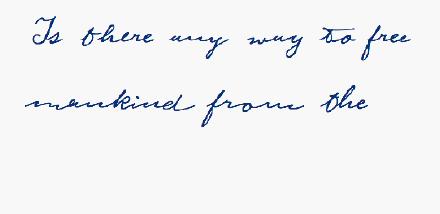 Is there any way to free
mankind from the